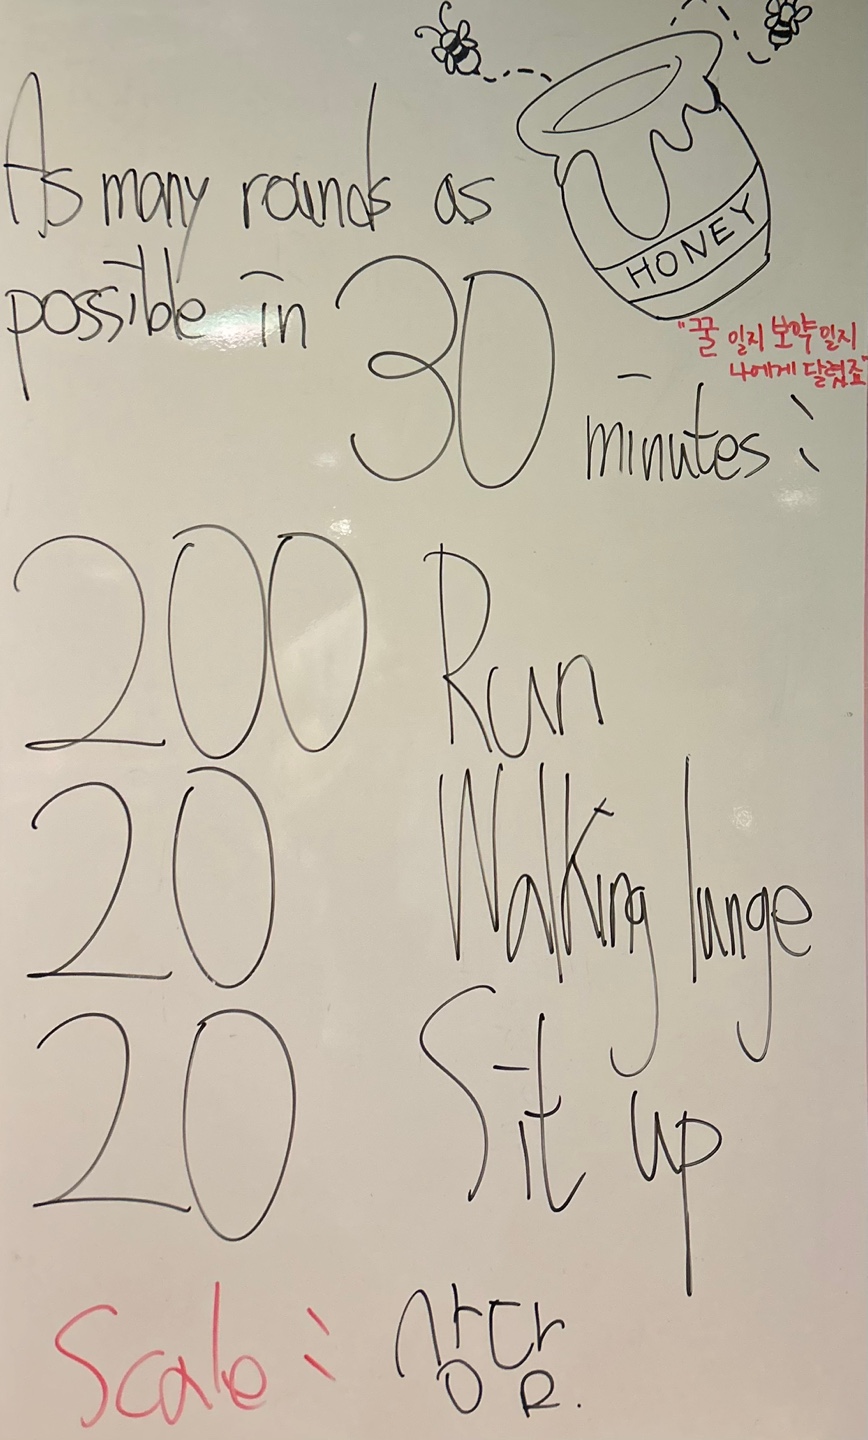 As many rounds as
possible in 30
minutes:
HONEY
"꿀 일지 보약 일지
나에게 달렸죠"
200 Run
20 Walking lunge
20 Sit up
Scale: 상담.